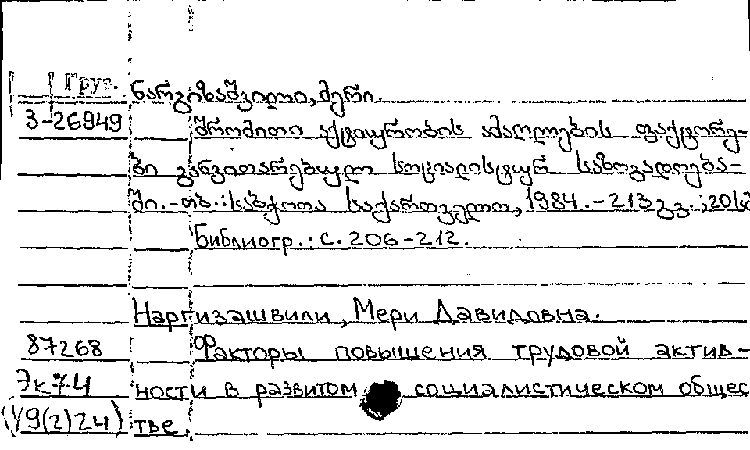 Груз. ნარგიზაშვილი, მერი.
3-26949 შრომითი აქტიურობის ამაღლების ფაქტორე-
ბი განვითარებულ სოციალისტურ საზოგადოება-
ში.-თბ.: საბჭოთა საქართველო, 1984.-213 გვ.; 20
Библиогр.: с. 206-212.
Наргизашвили, Мери Давидовна.
87268 Факторы повышения трудовой актив-
Эк74 ности в развитом социалистическом общес
(У9(2)24) тве.